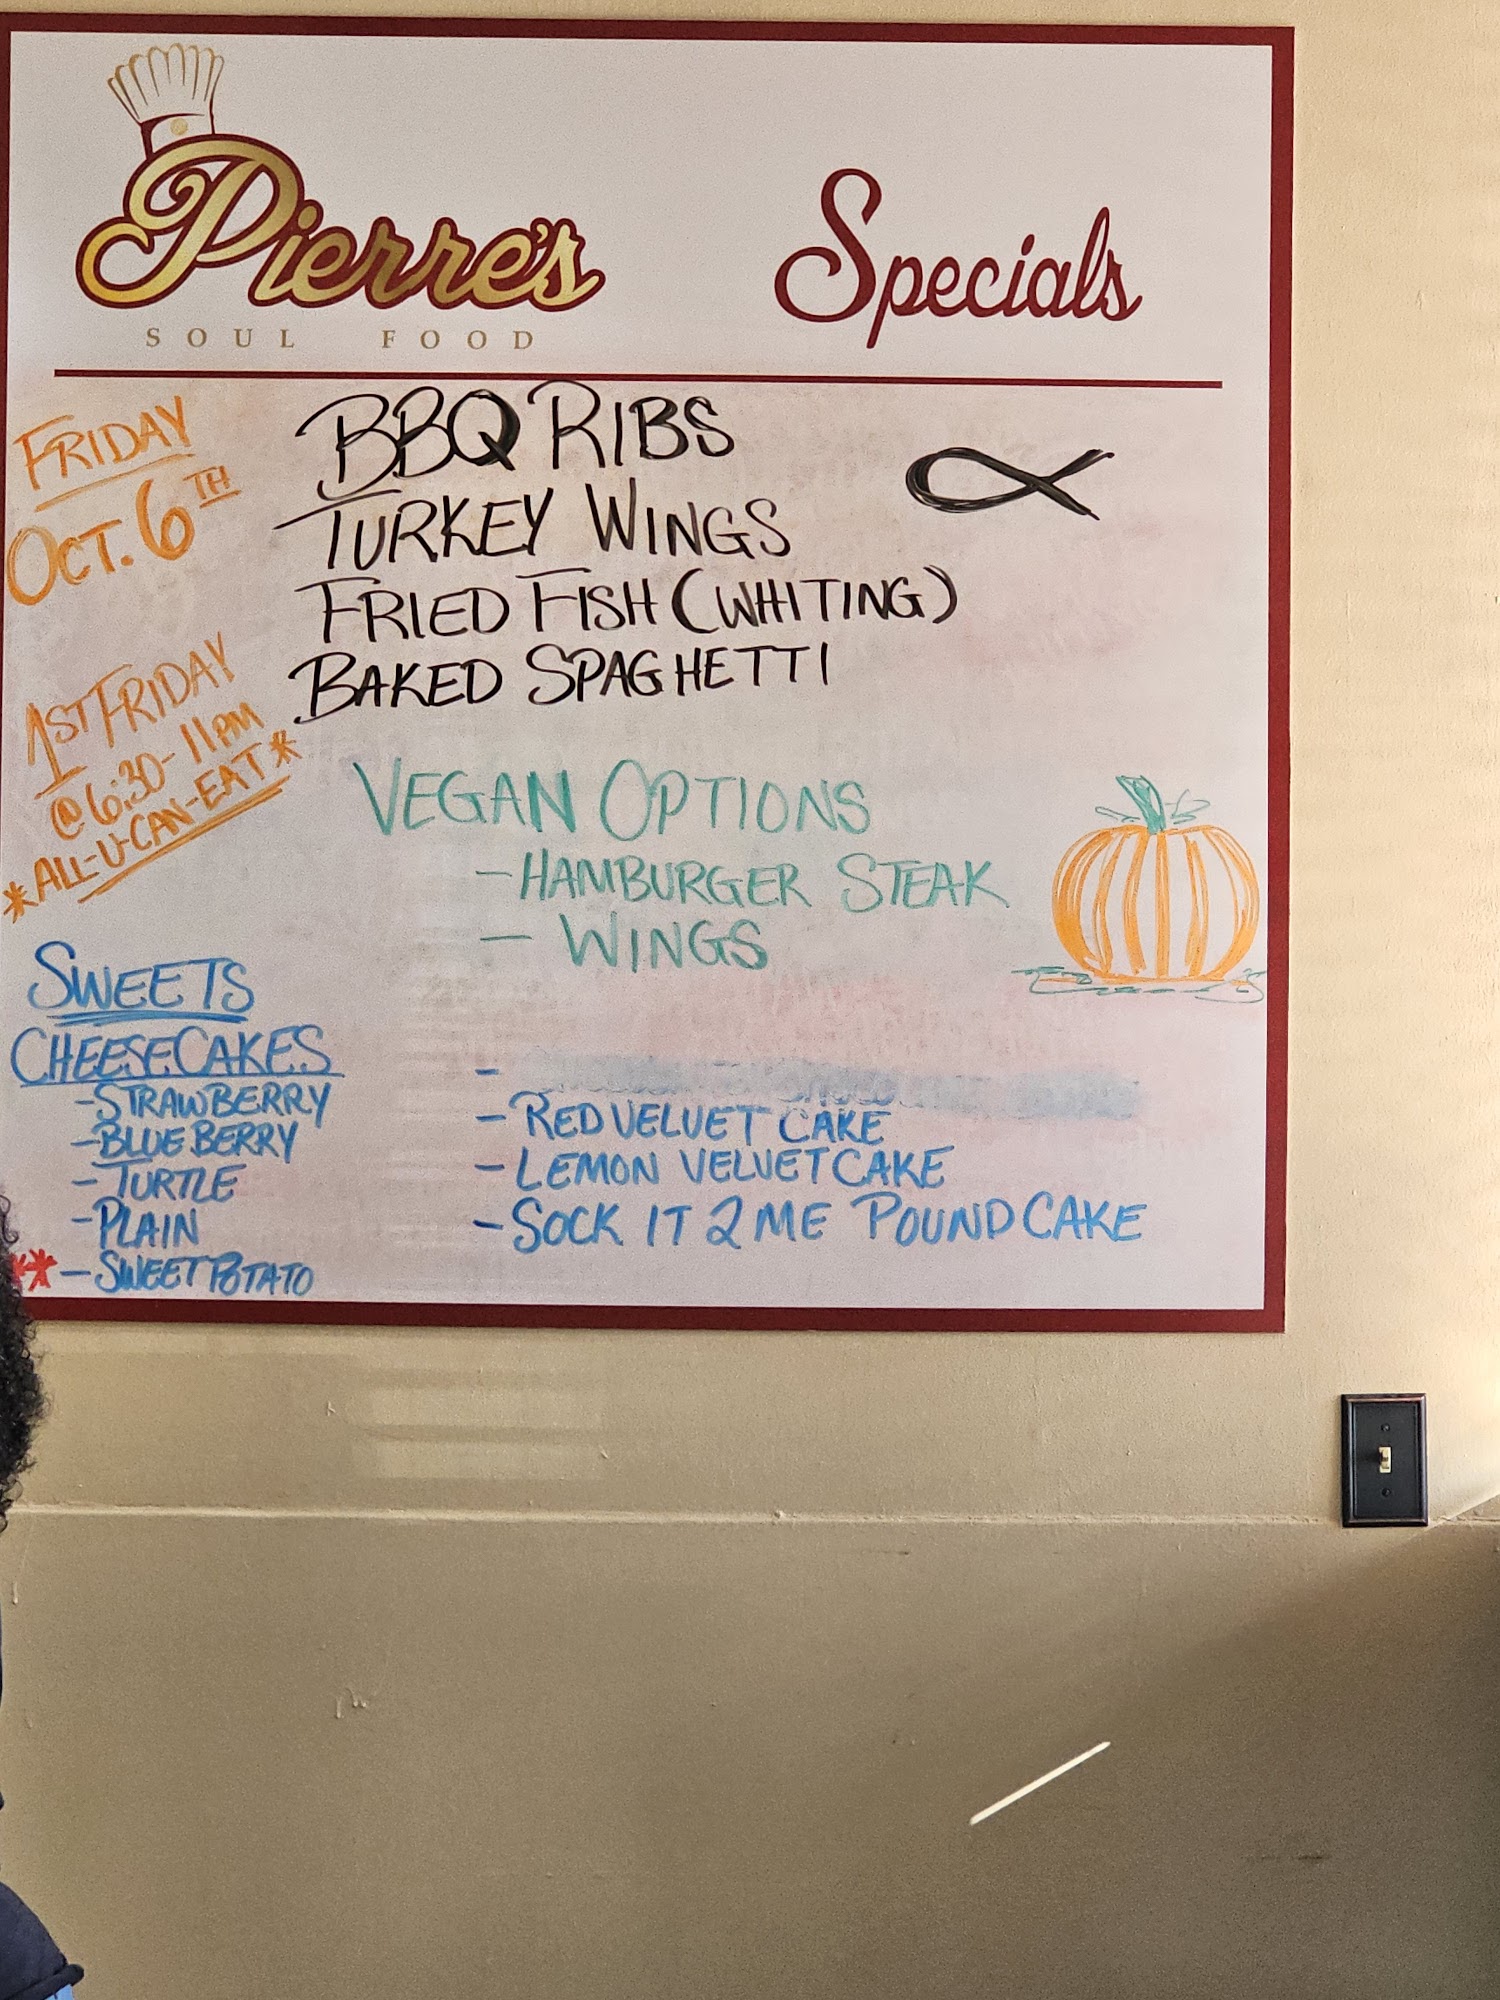 Pierre's
SOUL FOOD
Specials
FRIDAY
OCT. 6TH
BBQ RIBS
TURKEY WINGS
FRIED FISH (WHITING)
BAKED SPAGHETTI
1ST FRIDAY
@ 6:30-11PM
*ALL-U-CAN-EAT*
VEGAN OPTIONS
-HAMBURGER STEAK
- WINGS
SWEETS
CHEESECAKES
-STRAWBERRY
-BLUEBERRY
-TURTLE
-PLAIN
**-SWEET POTATO
-
-RED VELVET CAKE
-LEMON VELVET CAKE
-SOCK IT 2 ME POUND CAKE